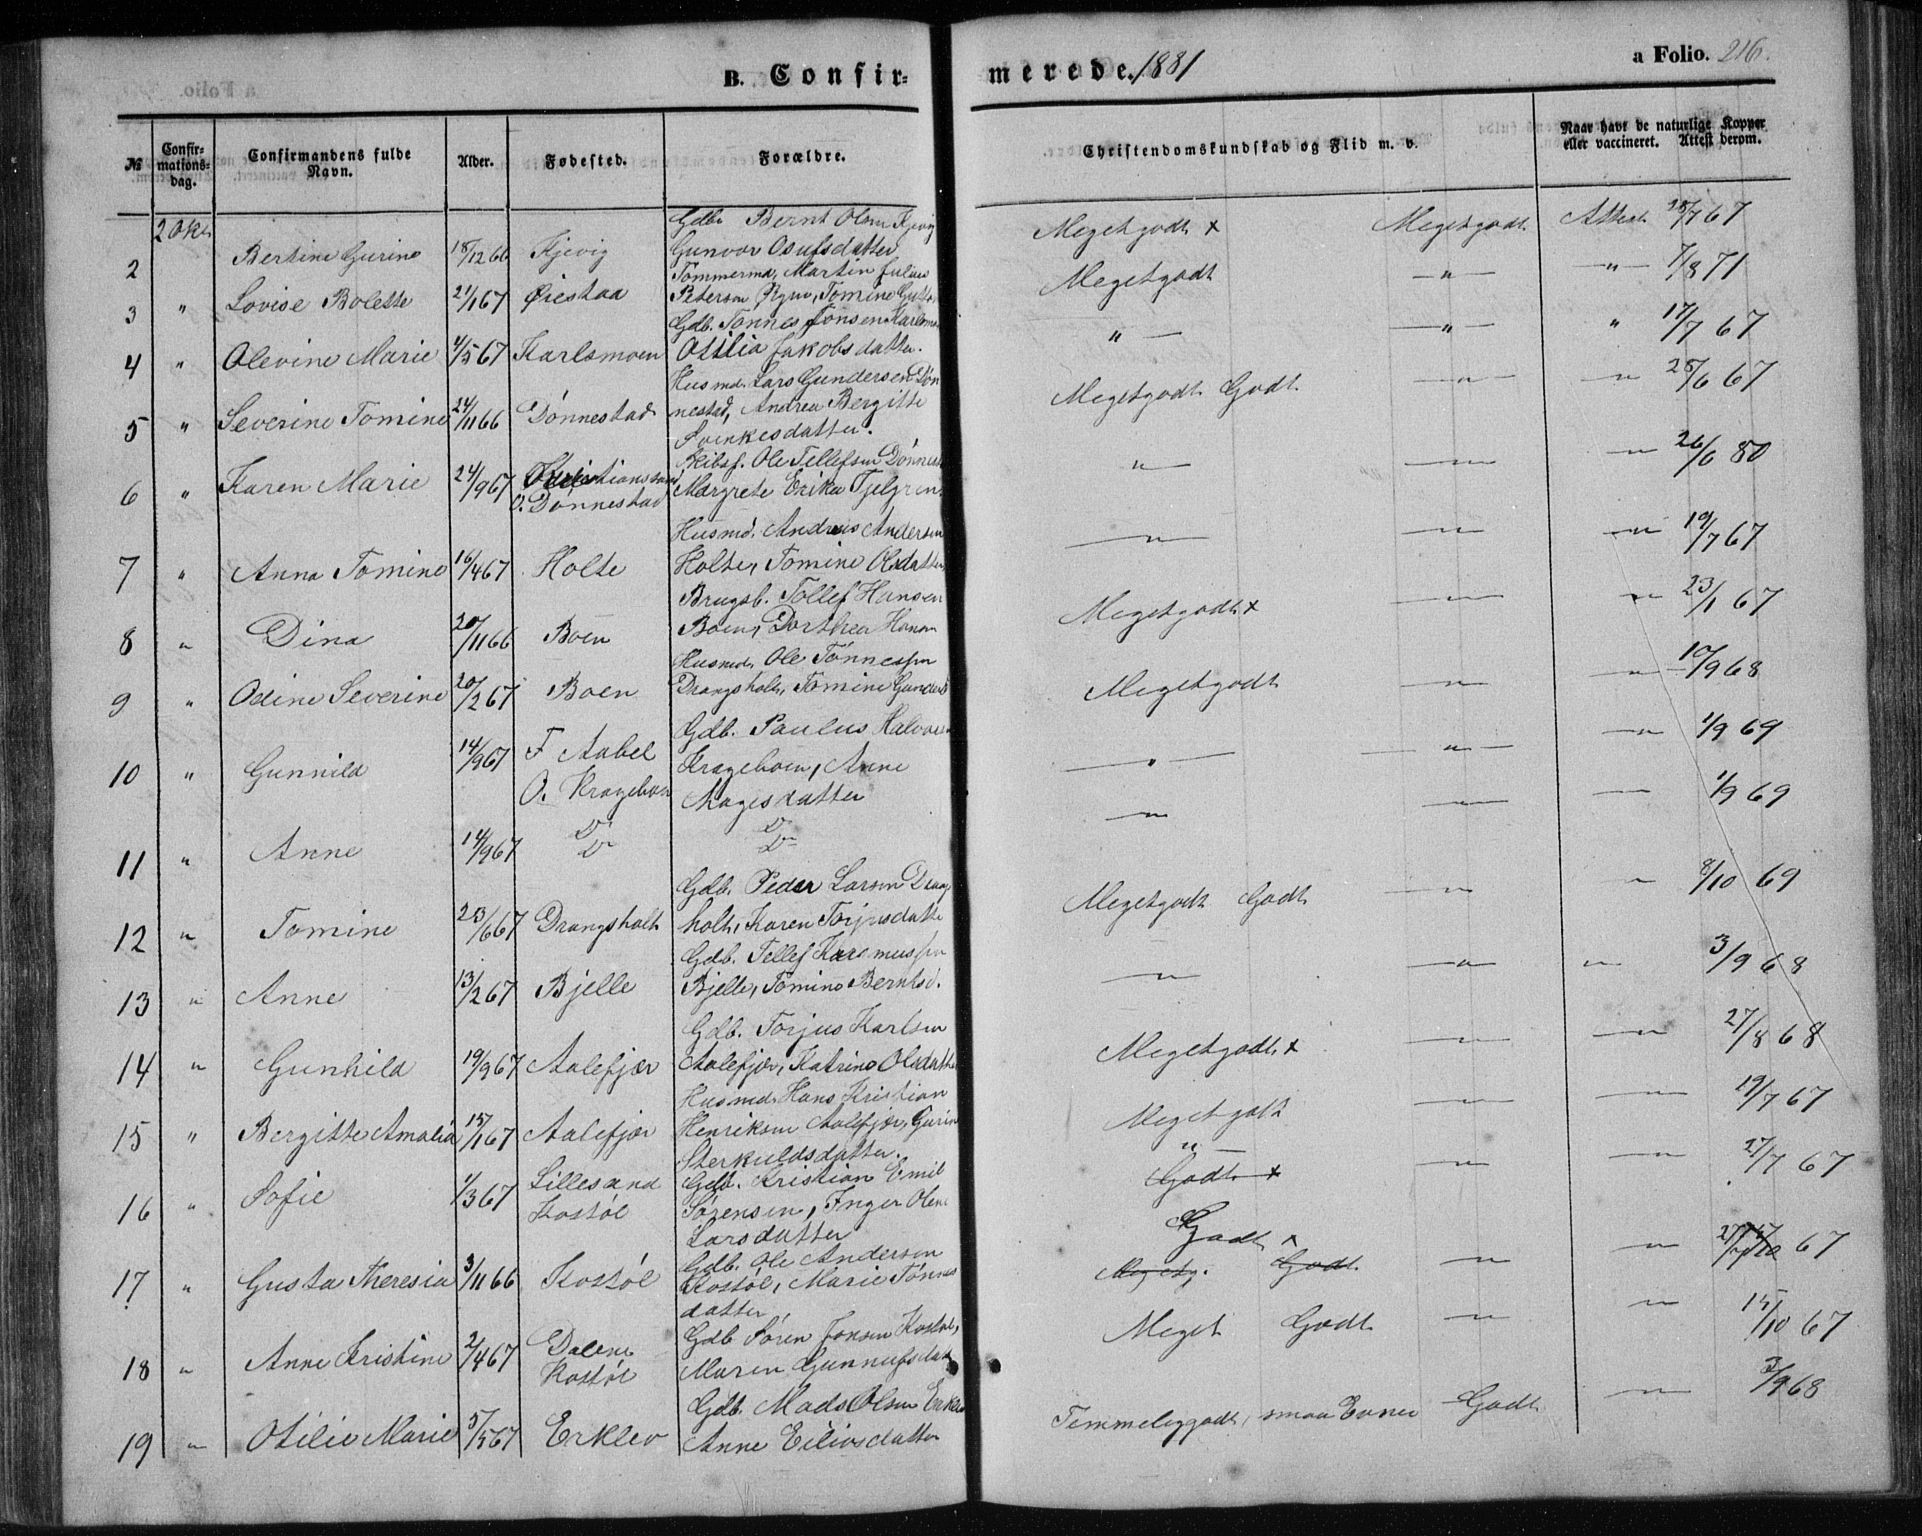 B. Confir-
merede. 1881
a Folio. 216.
№
Confir-
mations-
dag.
Confirmandens fulde
Navn.
Alder.
Fødested.
Forældre.
Christendomskundskab og Flid m. v.
Naar havt de naturlige Kopper
eller vaccineret. Attest derom.
2 Okt.
Gdbr Bernt Olsen Kjevig
2 Bertine Gurine 18/12 66 Kjevig Gunvor Osufsdatter Megetgodt x Megetgodt Attest 28/7 67
Tømmermd, Martin Julius
3 " Lovise Bolette 21/1 67 Øiestad Peterson Tomine Megetgodt " " 7/8 71
Gdb. Tønnes Jonsen Karlsmo
4 " Olevine Marie 1/5 67 Karlsmoen Otilia Jakobsdatter. " " " 17/7 67
Husmd. Lars Gundersen Døn
5 " Severine Tomine 24/11 66 Dønnestad nestad, Andrea Bergitte Megetgodt Godt " " 28/6 67
Svenkesdatter.
Skibsf. Ole Tellefsen Dønnes
6 " Karen Marie 24/9 67 Kristianssand Margrete Erika Fjelgren " " 26/6 80
O. Dønnestad
Husmd. Andreas Andersen
7 " Anna Tomine 16/4 67 Holte Holte, Tomine Olsdatter " " " 19/7 67
Brugsb. Tollef Hansen
8 " Dina 20/11 66 Boen Boen, Dorthea Hansen Megetgodt x " " 23/1 67
Husmd. Ole Tønnessen
9 " Odine Severine 20/2 67 Boen Drangsholt, Tomine Gunders Megetgodt " " 10/9 68
Gdb. Paulus Halvorsen
10 " Gunnild 14/9 67 F Aabel Krageboen, Anne " " " 1/9 69
O. Krageboen Aagesdatter
11 " Anne 14/9 67 Do Do " " " 1/9 69
Gdb. Peder Larsen Drangs
12 " Tomine 23/6 67 Drangsholt holt, Karen Torjusdatte Megetgodt Godt " " 8/10 69
Gdb. Tellef Rasmussen
13 " Anne 13/2 67 Bjelle Bjelle, Tomine Berntsd. " " " 3/9 68
Gdb. Torjus Karlsen
14 " Gunhild 19/9 67 Aalefjær Aalefjær, Katrine Olsdatte Megetgodt x " " 27/8 68
Husmd. Hans Kristian
15 " Bergitte Amalia 15/1 67 Aalefjær Henriksen Aalefjær, Gurine Megetgodt " " 19/7 67
Sterkuldsdatter.
Gdb. Kristian Emil
16 " Sofie 1/3 67 Lillesand Sørensen, Inger Olene Godt x " " 27/7 67
Kostøl
Larsdatter
Gdb. Ole Anderson Godt x
17 " Gusta Theresia 3/11 66 Kostøl Kostøl, Marie Tønnes Megetg. Godt. " " 67
datter
Gdb Søren Jonsen Kostøl,
18 " Anne Kristine 2/4 67 Dalene Maren Gunnufsdat Meget Godt " " 15/10 67
Kostøl
Gdb. Mads Olsen Erklev
19 " Otilie Marie 5/5 67 Erklev Anne Eilivsdatter Temmeliggodt, smaa Evner Godt " 3/9 68